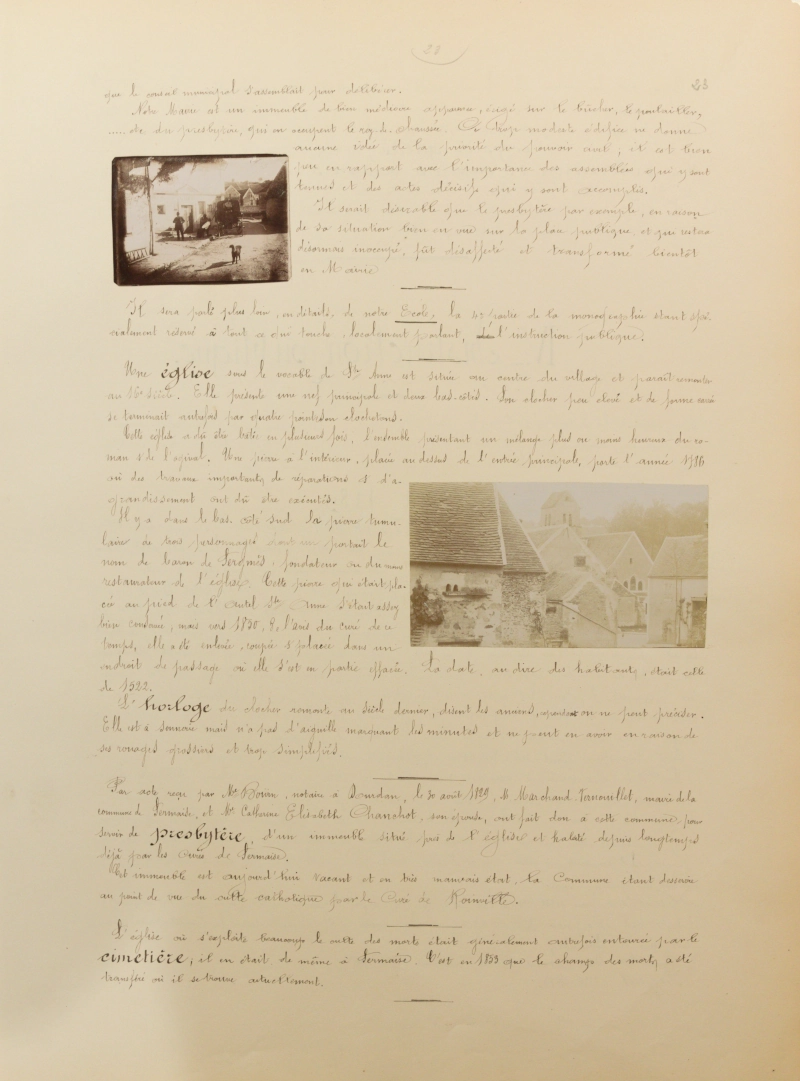 28
23
que le conseil municipal s'assemblait pour délibérer.
Notre Mairie est un immeuble de bien médiocre apparence, érigé sur le bûcher, le poulailler,
..... etc du presbytère, qui en occupent le rez-de-chaussée. Ce trop modeste édifice ne donne
aucune idée de la priorité du pouvoir civil, et est bien
peu en rapport avec l'importance des assemblées qui y sont
tenues et des actes décisifs qui y sont accomplis.
Il serait désirable que le presbytère par exemple, en raison
de sa situation bien en vue sur la place publique, et qui restera
désormais inoccupé, fût désaffecté et transformé bientôt
en Mairie
Il sera parlé plus loin, en détails, de notre Ecole, la 4e partie de la monographie étant spé-
cialement réservé à tout ce qui touche, localement parlant, à l'instruction publique.
Une église sous le vocable de Ste Anne est située au centre du village et paraît remonter
au 16e siècle. Elle présente une nef principale et deux bas-côtés. Son clocher peu élevé et de forme carrée
se terminait autrefois par quatre pointes ou clochetons.
Cette église a dû être bâtie en plusieurs fois, l'ensemble présentant un mélange plus ou moins heureux du ro-
man & de l'ogival. Une pierre à l'intérieur, placée au dessus de l'entrée principale, porte l'année 1786
où des travaux importants de réparations & d'a-
grandissement ont dû être exécutés.
Il y a dans le bas-côté sud la pierre tumu-
laire de trois personnages dont un portait le
nom de baron de fondateur ou du moins
restaurateur de l'église. Cette pierre qui était pla-
cée au pied de l'autel Ste Anne s'était assez
bien conservée; mais vers 1830, à l'insu du curé de ce
temps, elle a été enlevée, coupée & placée dans un
endroit de passage où elle s'est en partie effacée. La date, au dire des habitants, était celle
de 1522.
L'horloge du clocher remonte au siècle dernier, disent les anciens, cependant on ne peut préciser.
Elle est à sonnerie mais n'a pas d'aiguille marquant les minutes et ne peut en avoir en raison de
ses rouages grossiers et trop simplifiés.
Par acte reçu par Me notaire à Dourdan, le 30 août 1829, M. Marchand Vernouillet, maire de la
commune de Sermaise, et Mme Catherine Elisabeth Chanchot, son épouse, ont fait don à cette commune pour
servir de presbytère, d'un immeuble situé près de l'église et habité depuis longtemps
déjà par les curés de Sermaise.
Cet immeuble est aujourd'hui vacant et en très mauvais état, la Commune étant desservie
au point de vue du culte catholique par le Curé de Roinville.
L'église où s'exploite beaucoup le culte des morts était généralement autrefois entourée par le
cimetière; il en était de même à Sermaise. C'est en 1853 que le champ des morts a été
transféré où il se trouve actuellement.